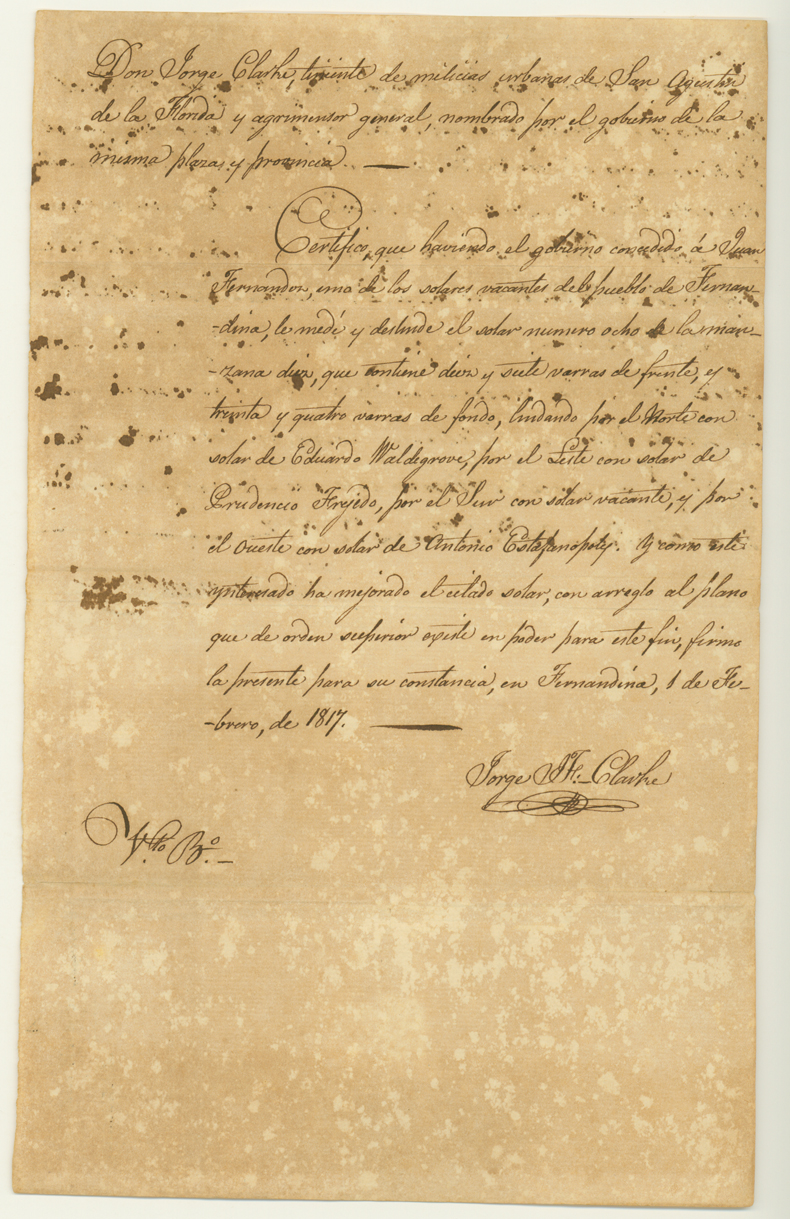 Don Jorge Clarke, teniente de milicias urbanas de San Agustin
de la Florida y agrimensor general, nombrado por el gobierno de la
misma plaza, y provincia.
Certifico, que haviendo el gobierno concedido, á Juan
Fernandez, uno de los solares vacantes del pueblo de Fernan-
-dina, le medí y deslindé el solar numero ocho de la man-
-zana diez, que contiene diez y siete varras de frente, y
treinta y quatro varras de fondo, lindando por el Norte con
solar de Eduardo Waldegrove, por el Leste con solar de
Prudencio Frejedo, por el Sur con solar vacante, y por
el Oueste con solar de Antonio Estefanopoly. Y como este
ynteresado ha mejorado el citado solar, con arreglo al plano
que de orden superior existe en poder para este fin, firmo
la presente para su constancia, en Fernandina, 1 de Fe-
-brero, de 1817.
Jorge J. F. Clarke
V.to B.o